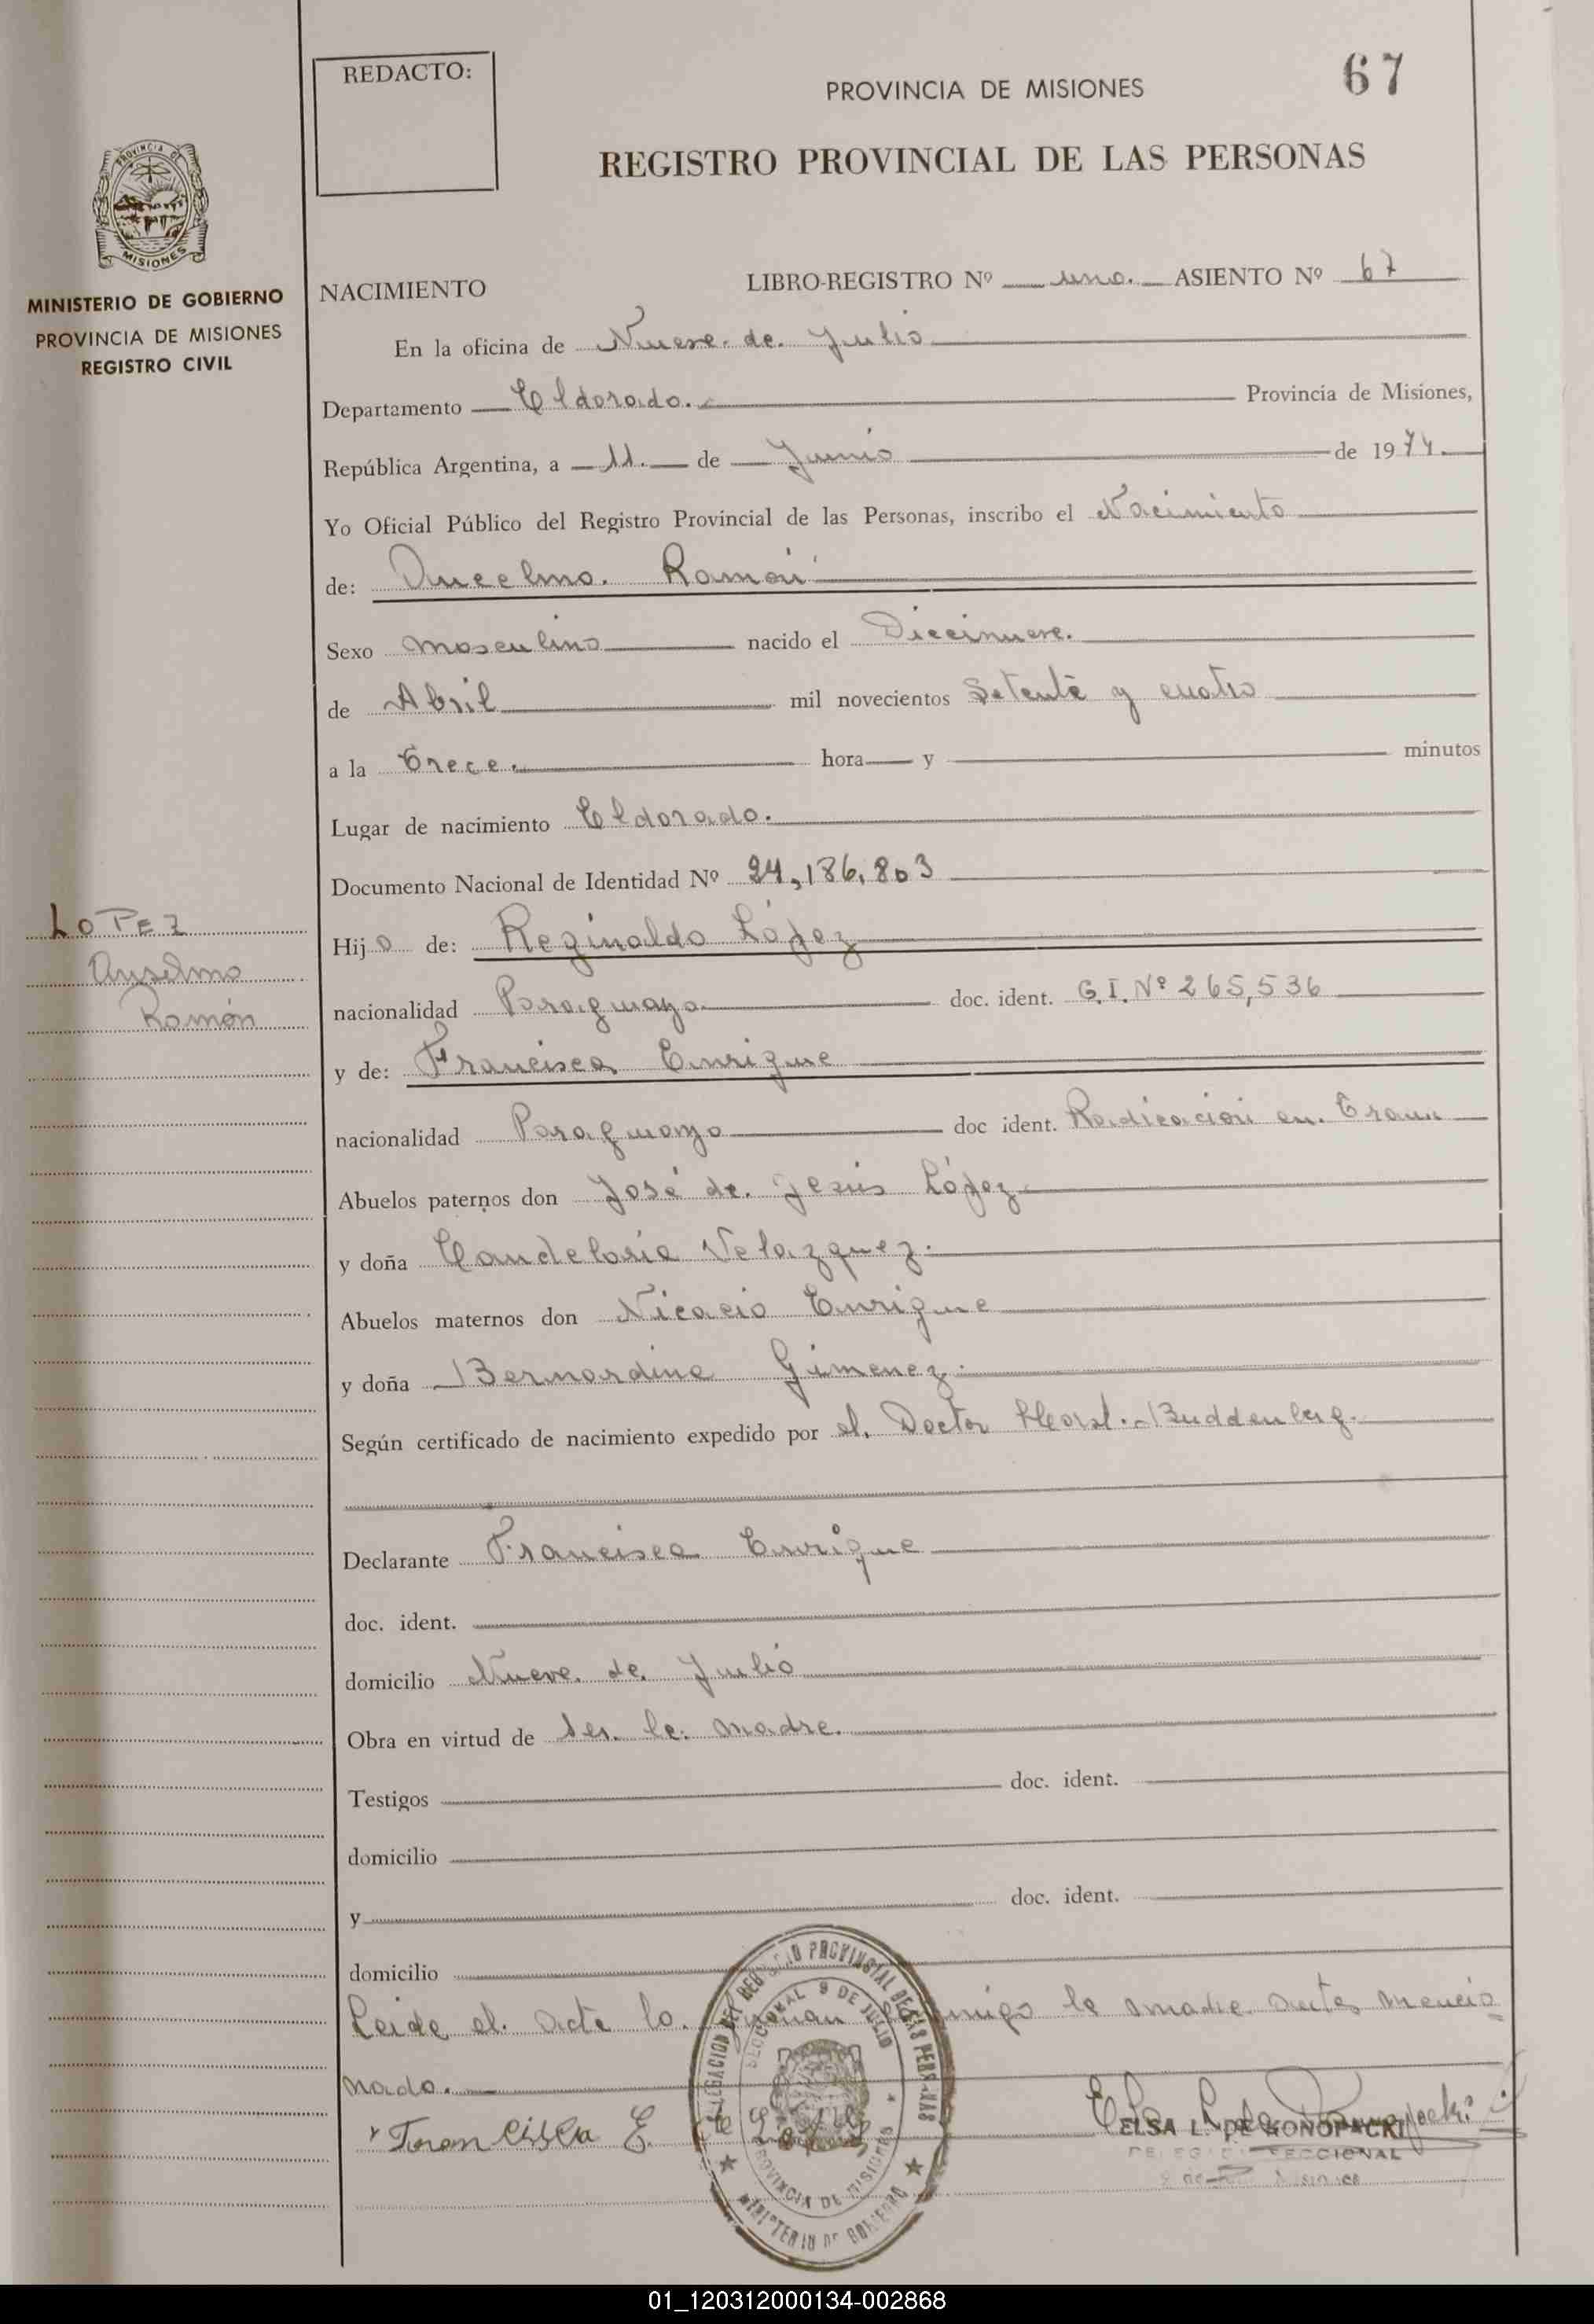 REDACTO:
67
PROVINCIA DE MISIONES
REGISTRO PROVINCIAL DE LAS PERSONAS
PROVINCIA DE
MISIONES
MINISTERIO DE GOBIERNO
PROVINCIA DE MISIONES
REGISTRO CIVIL
NACIMIENTO LIBRO-REGISTRO Nº uno. ASIENTO Nº 67
En la oficina de Nueve de Julio
Departamento Eldorado. Provincia de Misiones,
República Argentina, a 11. de Junio de 1974.
Yo Oficial Público del Registro Provincial de las Personas, inscribo el Nacimiento
de: Ancelmo. Ramón
Sexo masculino nacido el Diecinueve.
de Abril mil novecientos Setenta y cuatro
a la Trece. hora y minutos
Lugar de nacimiento Eldorado.
Documento Nacional de Identidad Nº 24,186,803
LOPEZ
Anselmo
Ramón
Hijo de: Reginaldo López
nacionalidad Paraguaya doc. ident. C.I. Nº 265,536
y de: Francisca Enrique
nacionalidad Paraguaya doc ident. Radicación en
Abuelos paternos don José de Jesús López
y doña Candelaria Velazquez.
Abuelos maternos don Nicacio Enrique
y doña Bernardina Gimenez.
Según certificado de nacimiento expedido por el Doctor Horst. Buddenberg.
Declarante Francisca Enrique
doc. ident.
domicilio Nueve de Julio
Obra en virtud de ser la madre.
Testigos doc. ident.
domicilio
y doc. ident.
domicilio
Leida el acta lo firman conmigo la madre antes mencio
nada.
Francisca E. de López
ELSA L. DE KONOPACKI
SECCIONAL
SECCIONAL 9 DE JULIO
PROVINCIA DE MISIONES
MINISTERIO DE GOBIERNO
01_120312000134-002868